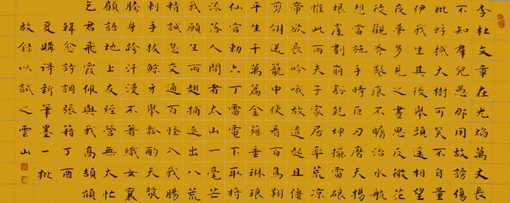 李杜文章在光焰萬丈長
不知群兒愚那用故謗傷
蚍蜉撼大樹可笑不自量
伊我生其後舉頸遙相望
夜夢多見之晝思反微茫
徒觀斧鑿痕不矚治水航
想當施手時巨刃磨天揚
垠崖劃崩豁乾坤擺雷硠
惟此兩夫子家居率荒涼
帝欲長吟哦故遣起且僵
翦翎送籠中使看百鳥翔
平生千萬篇金薤垂琳琅
仙官勅六丁雷電下取將
流落人間者太山一毫芒
我願生兩翅捕逐出八荒
精誠忽交通百怪入我腸
刺手拔鯨牙舉瓢酌天漿
騰身跨汗漫不著織女襄
顧語地上友經營無太忙
乞君飛霞佩與我高頡頏
韓愈詩調張籍丁酉
夏購得新筆墨一批
故錄以試之雲山